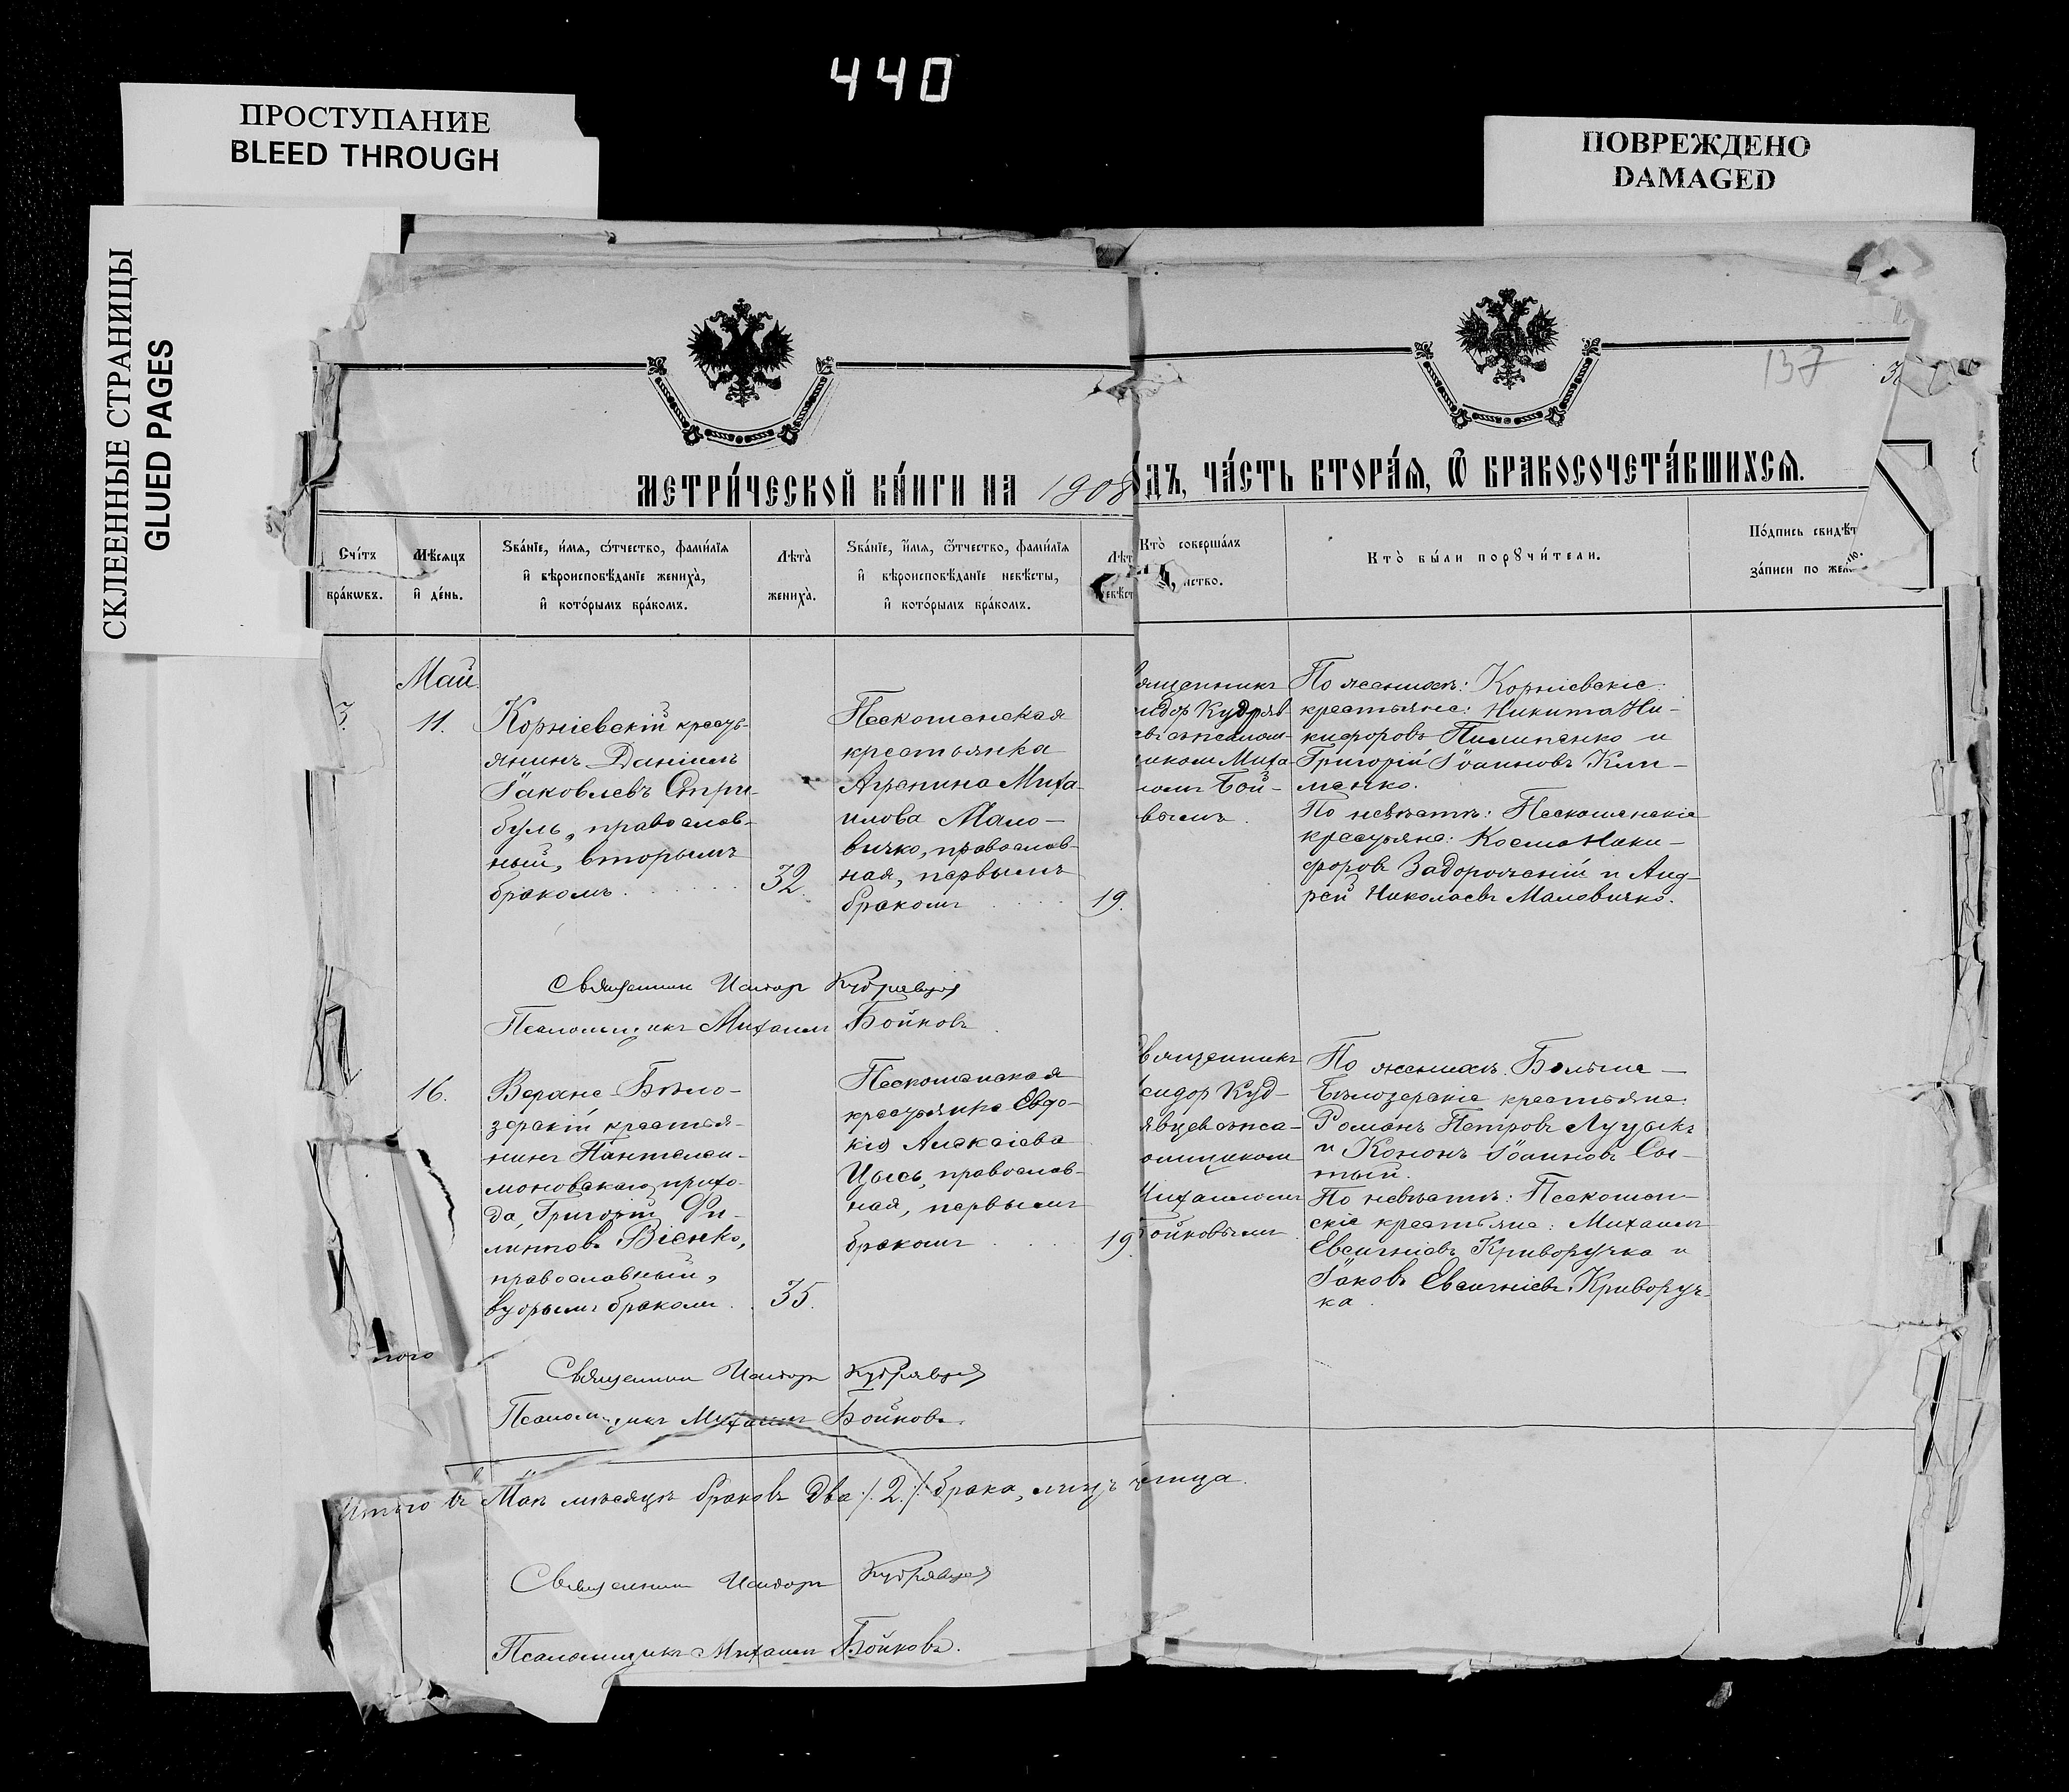 440
ПРОСТУПАНИЕ
BLEED THROUGH
ПОВРЕЖДЕНО
DAMAGED
СКЛЕЕННЫЕ СТРАНИЦЫ
GLUED PAGES
137
МЕТРИ́ЧЕСКОЙ КНИ́ГИ НА 1908
ДЪ, ЧА́СТЬ ВТОРА́Ѧ, Ѿ БРАКОСОЧЕТА́ВШИХСѦ.
Сче́тъ
бра́кѡвъ.
Мѣ́сяцъ
и҆ де́нь.
Ѕва́нїе, и҆́мѧ, ѻ҆́тчество, фами́лїѧ
и҆ вѣроисповѣ́данїе жениха̀,
и҆ кото́рымъ бра́комъ.
Лѣ́та
жениха̀.
Ѕва́нїе, и҆́мѧ, ѻ҆́тчество, фами́лїѧ
и҆ вѣроисповѣ́данїе невѣ́сты,
и҆ кото́рымъ бра́комъ.
Лѣт
невѣст
Кто̀ соверша́лъ
нство.
Кто̀ бы́ли порꙋчи́тели.
По́дпись свидѣт
за́писи по жел
Май
3.
11.
Корніевскій кресть-
янинъ Даніилъ
Іаковлевъ Стри-
буль, православ-
ный, вторымъ
бракомъ
32.
Пескошенская
крестьянка
Агрепина Миха-
илова Мало-
вичко, православ-
ная, первымъ
бракомъ
19.
вященникъ
идор Кудряв-
евъ съ псалом-
икомъ Миха-
ломъ Бой-
вымъ.
По женихѣ: Корніевскіе
крестьяне: Никита Ни-
кифоровъ Пилипенко и
Григорій Іоанновъ Кли-
менко.
По невѣстѣ: Пескошенскіе
крестьяне: Косма Ники-
форовъ Задорожній и Анд-
рей Николаевъ Маловичко.
Священник Исидоръ Кудрявцев
Псаломщикъ Михаилъ Бойковъ
16.
Верхне-Бѣло-
зерскій крестья-
нинъ Пантелеи-
моновскаго прихо-
да, Григорій Фи-
липпов
православный,
вторымъ бракомъ.
35.
Пескошенская
крестьянка Евдо-
кія Алексіева
Цысь, православ-
ная, первымъ
бракомъ
19.
вященникъ
сидор Куд-
явцев съ пса-
омщикомъ
Михаиломъ
Бойковымъ
По женихѣ. Больше-
Бѣлозерскіе крестьяне:
Романъ Петровъ Луцыкъ
и Кононъ Іоанновъ Сы-
тый.
По невѣстѣ: Пескошен-
скіе крестьяне: Михаилъ
Евсигніевъ Криворучка и
Іаковъ Евсигніевъ Криворуч-
ка.
Священник Исидоръ Кудрявцев
Псаломщикъ Михаилъ Бойковъ.
Итого въ Маѣ мѣсяцѣ браковъ два /.2./ брака,
Священник Исидоръ Кудрявцев
Псаломщикъ Михаилъ Бойковъ.